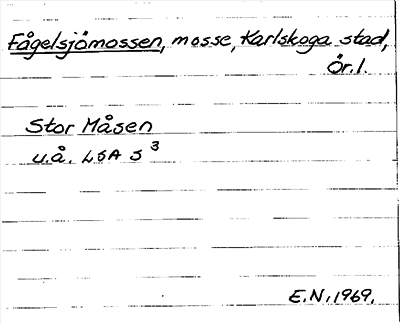 Fågelsjömossen, mosse, Karlskoga stad,
Ör.l.
Stor Måsen
u.å. LSA S 3
E.N. 1969.